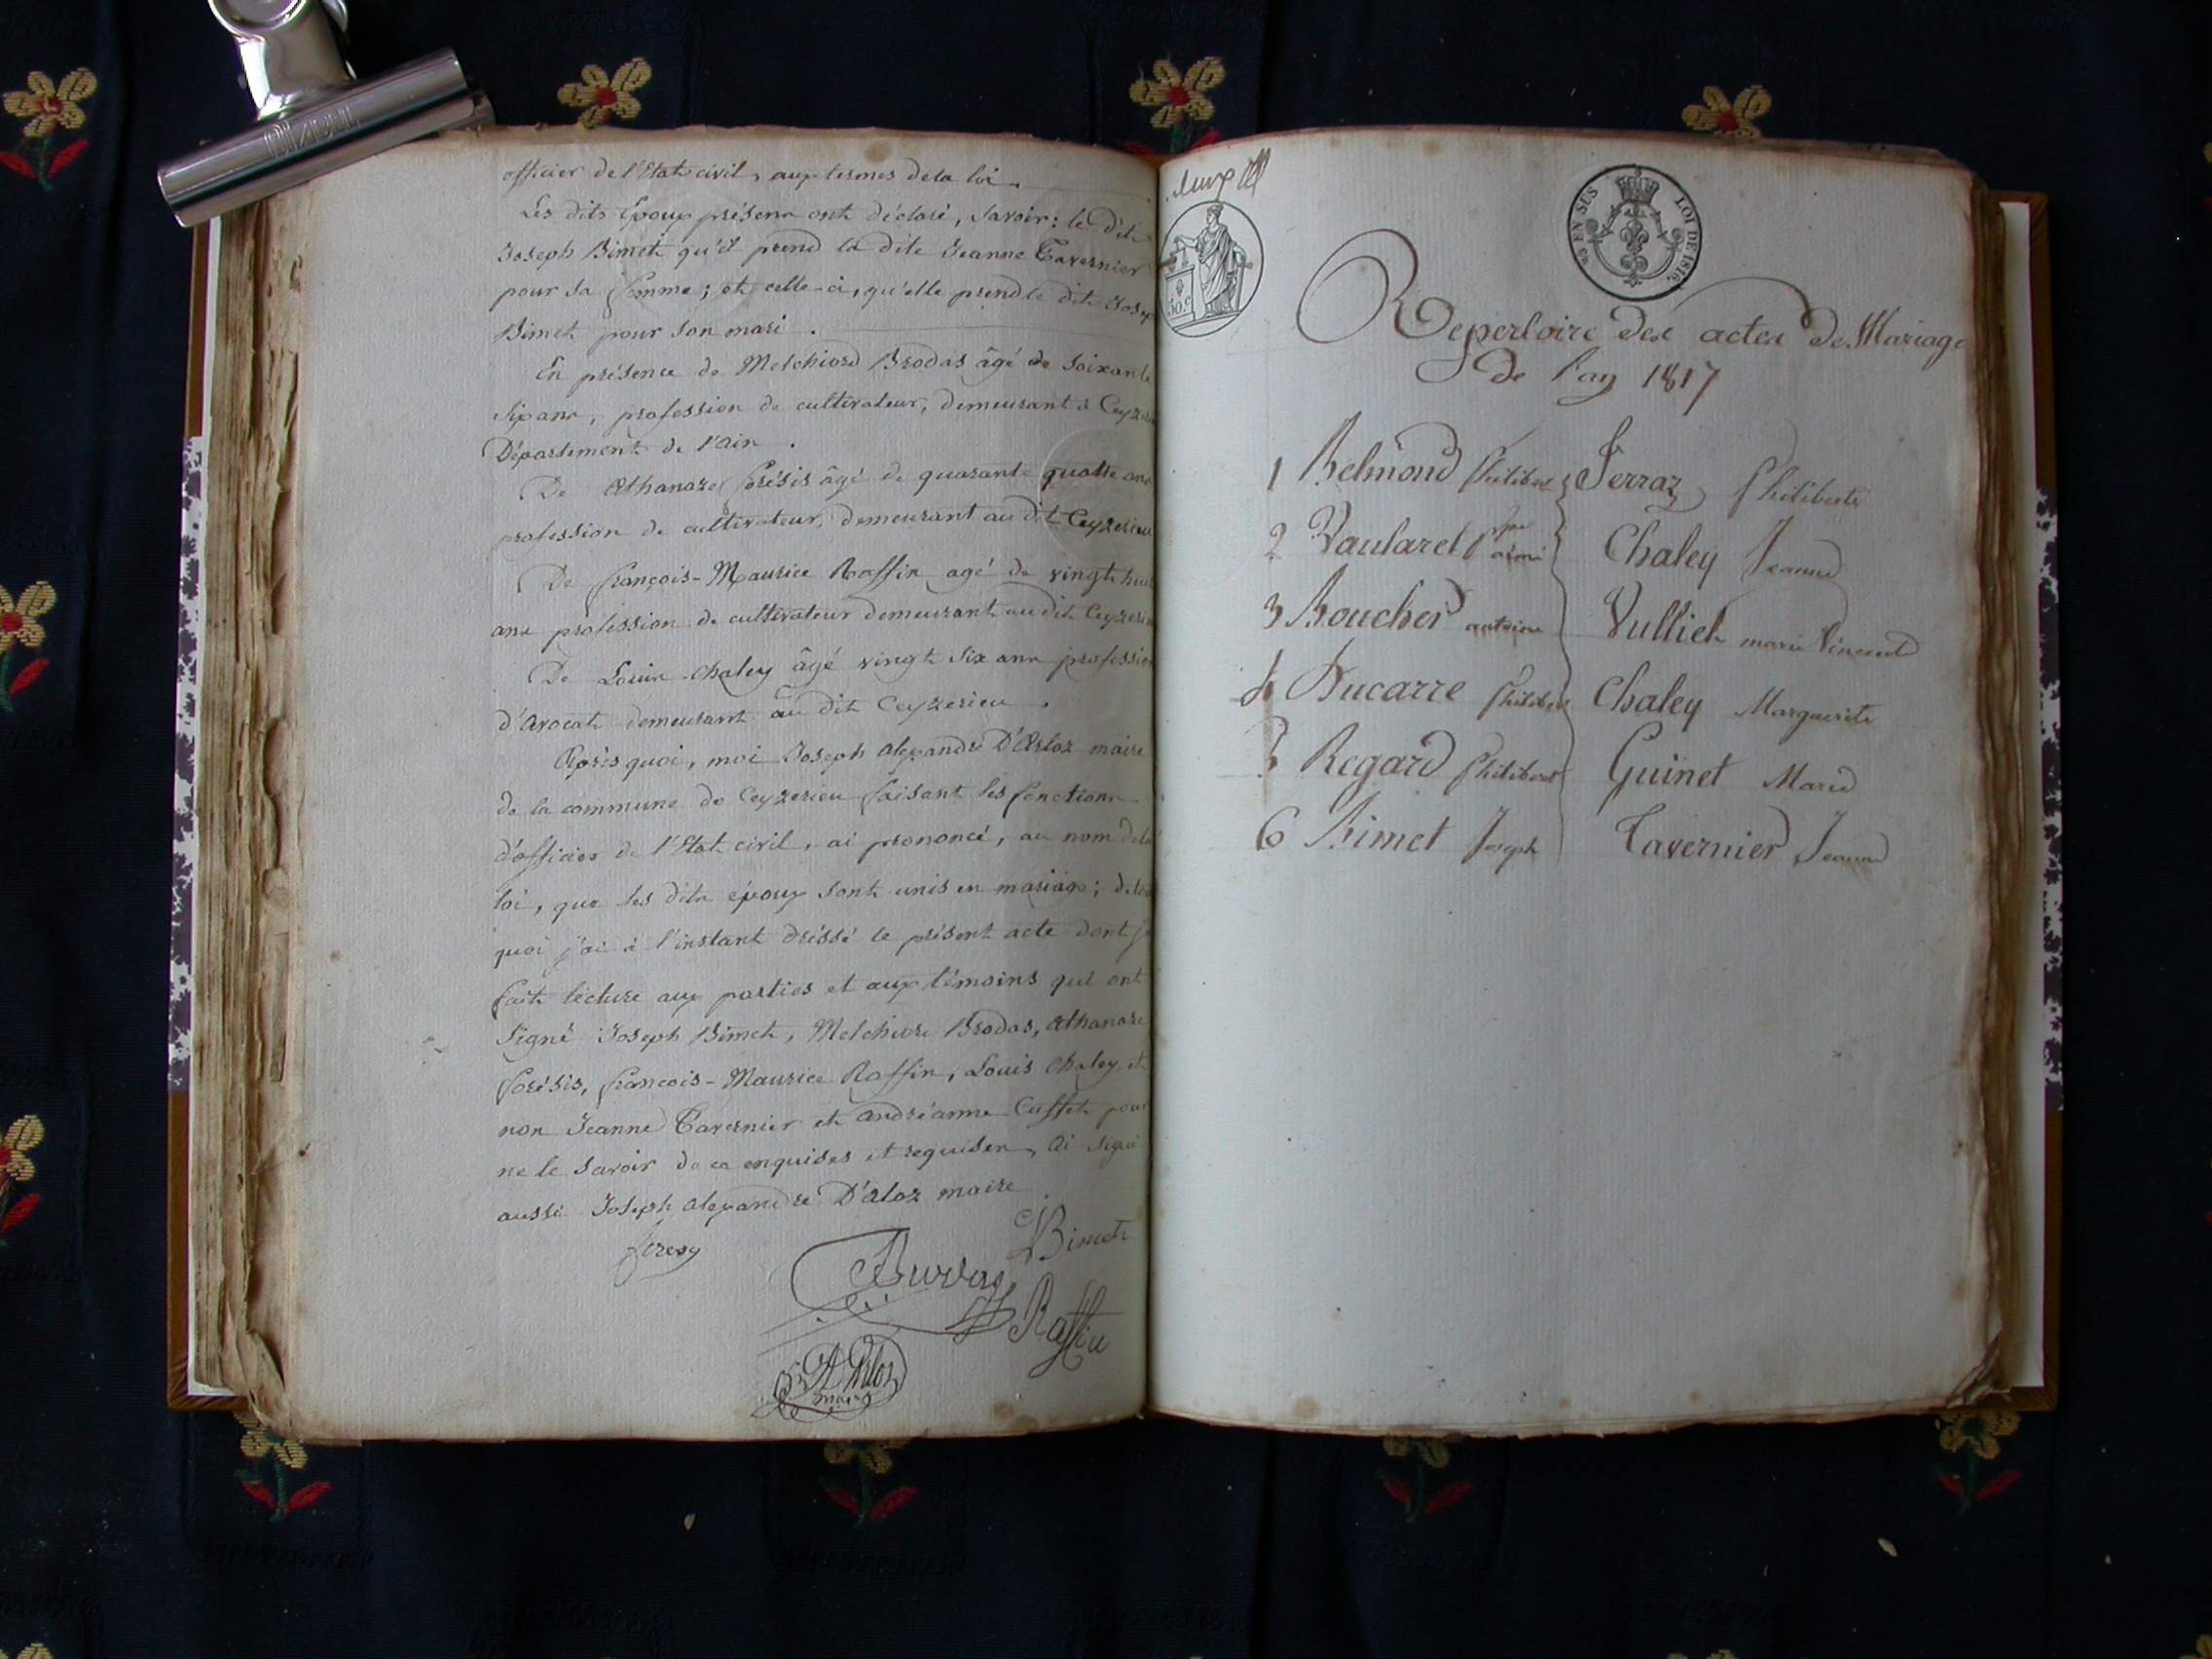 officier de l'Etat civil, aux termes de la loi.
Les dits Epoux présens ont déclaré, Savoir: le dit
Joseph Bimet qu'il prend la dite Jeanne Tavernier
pour sa femme; et celle-ci, qu'elle prend le dit Josep
Bimet pour son mari.
En présence de Melchiord Brodas âgé de soixante
Six ans, profession de cultivateur, demeurant à Ceyzerieu
Département de l'ain.
De Athanaze forésis âgé de quarante quatre ans
profession de cultivateur, demeurant au dit Ceyzerieu
De françois-Maurice Raffin agé de vingt huit
ans profession de cultivateur demeurant au dit Ceyzerieu
De Louis Chaley âgé vingt Six ans profession
d'Avocat demeurant au dit Ceyzerieu.
Après quoi, moi Joseph alexandre D'Arloz maire
de la commune de Ceyzerieu faisant les fonctions
d'officier de l'Etat civil, ai prononcé, au nom de la
loi, que les dits époux sont unis en mariage; de
quoi j'ai à l'instant dressé le présent acte dont j'
fait lecture aux parties et aux témoins qui ont
Signé Joseph Bimet, Melchiore Brodas, Athanaze
forésis, françois-Maurice Raffin, Louis Chaley, et
non Jeanne Tavernier et andréanne Cuffet pour
ne le Savoir de ce enquises et requises, ai Signé
aussi Joseph alexandre D'aloz maire
Bimet
Raffin
maire
50 c
EN SUS LOI DE 1816.
Repertoire des actes de Mariage
de l'an 1817
1 Belmond philibert Ferraz philiberte
2 Vaularet Chaley Jeanne
3 Boucher antoine Vulliet marie Vincent
4 Ducarre philibert Chaley Marguerite
5 Regard philibert Guinet Marie
6 Bimet Joseph Tavernier Jeanne